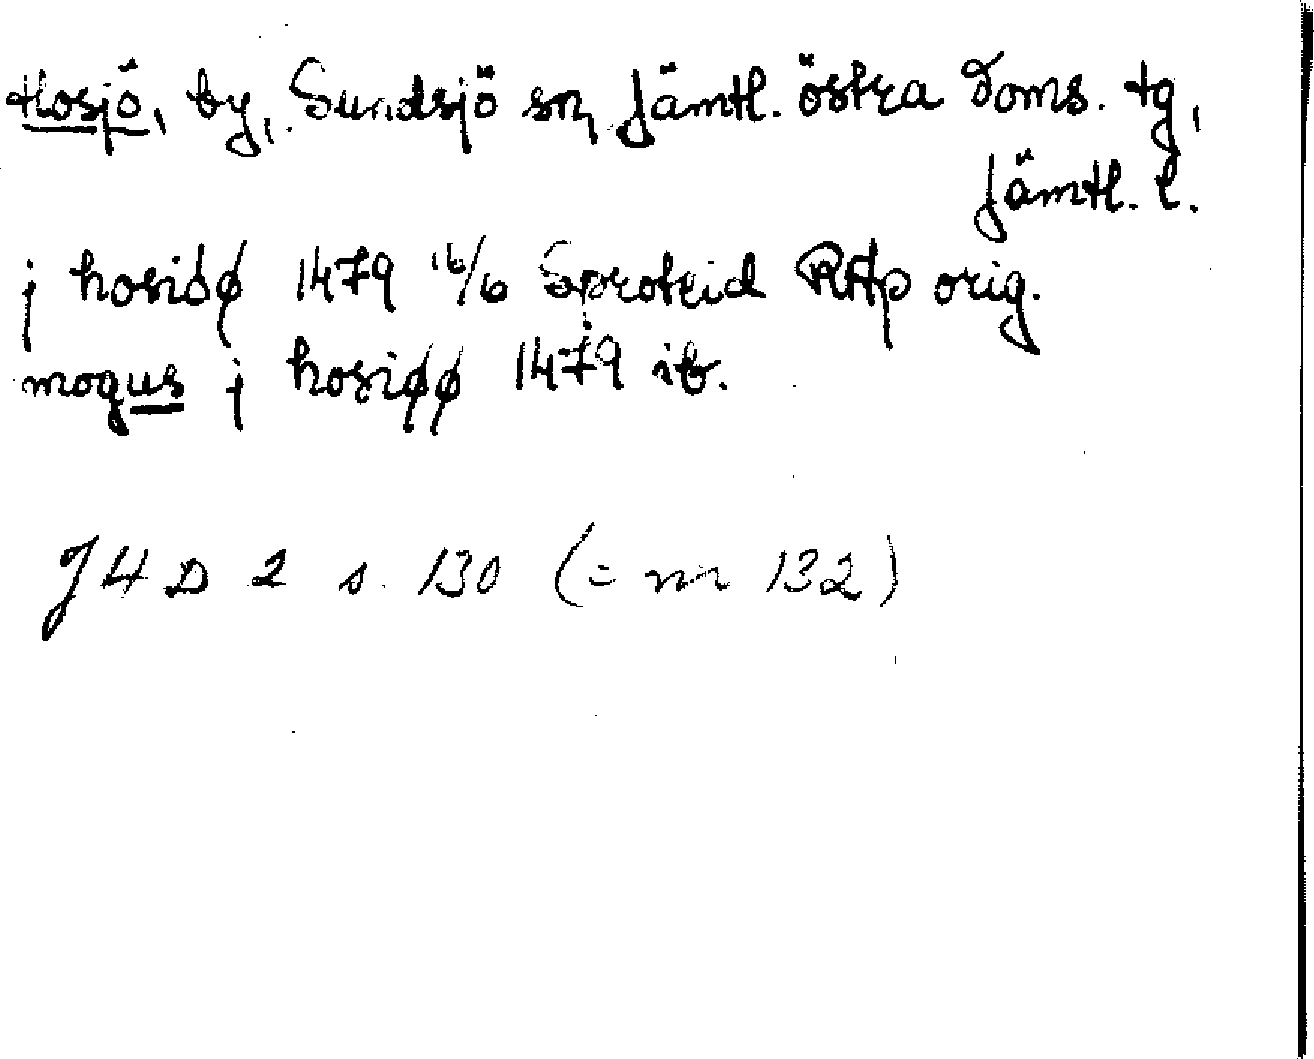 Hosjö, by, Sundsjö sn, Jämtl. östra doms. tg,
Jämtl. l.
j hosiøø 1479 16/6 Sproteid RAp orig.
mogus j hosiøø 1479 ib.
J H D 2 s. 130 (= nr 132)